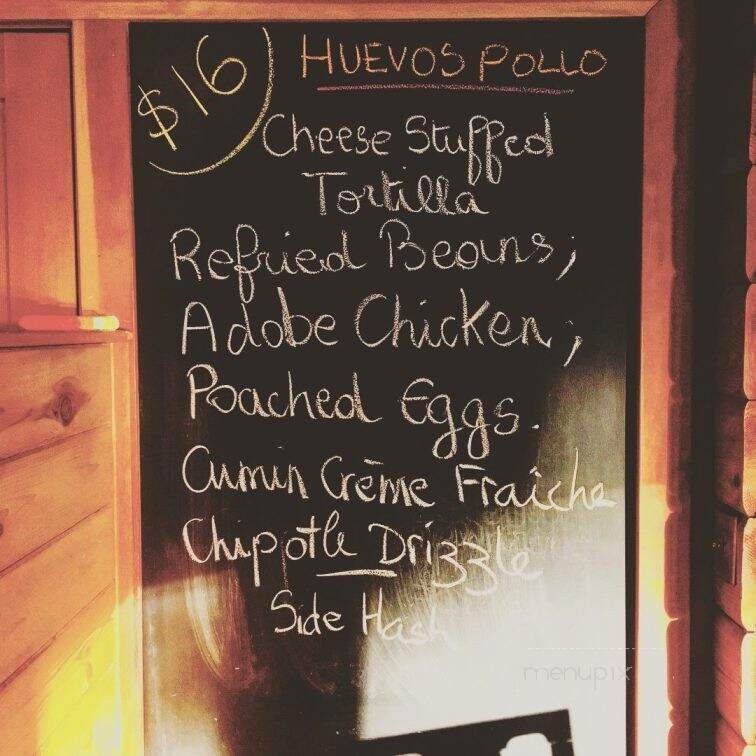 $16
HUEVOS POLLO
Cheese Stuffed
Tortilla
Refried Beans;
Adobe Chicken;
Poached Eggs.
Cumin Crème Fraîche
Chipotle Drizzle
Side Hash
menupix